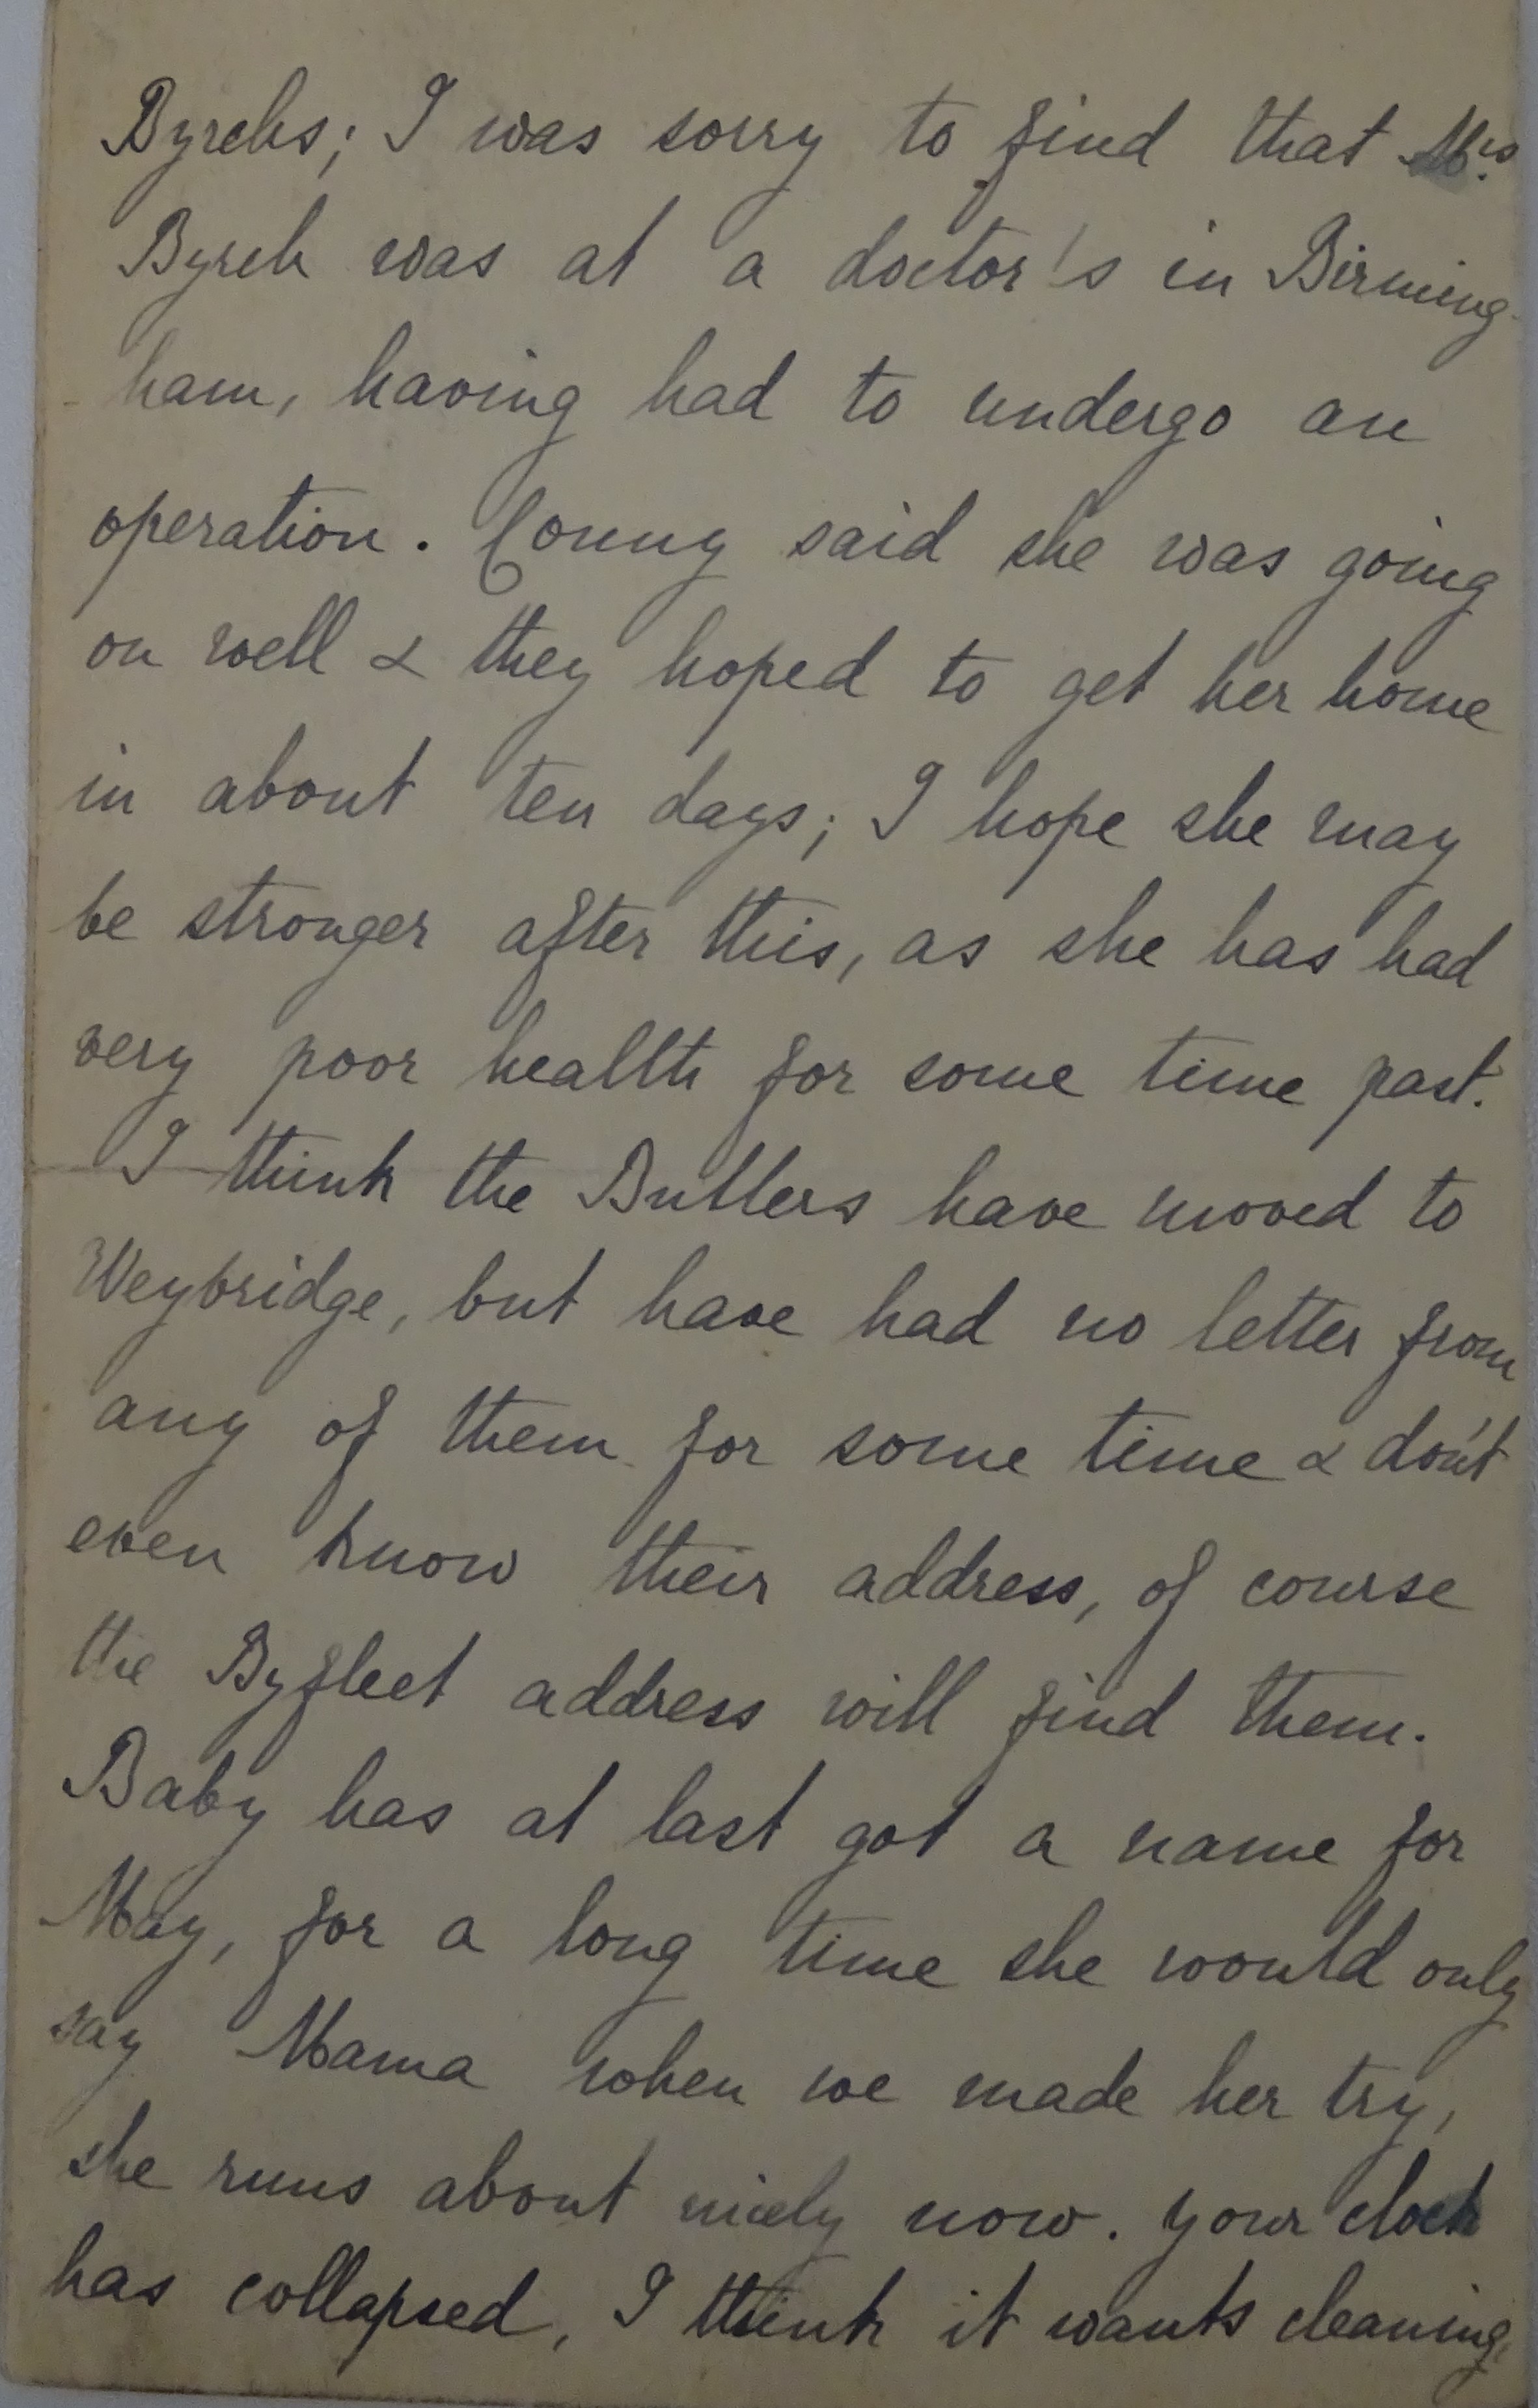 Byrchs; I was sorry to find that Mrs.
Byrch was at a doctor's in Birming-
-ham, having had to undergo an
operation. Conny said she was going
on well & they hoped to get her home
in about ten days; I hope she may
be stronger after this, as she has had
very poor health for some time past.
I think the Butlers have moved to
Weybridge, but have had no letter from
any of them for some time & don't
even know their address, of course
the Byfleet address will find them.
Baby has at last got a name for
May, for a long time she would only
say Mama when we made her try,
she runs about nicely now. Your clock
has collapsed, I think it wants cleaning,